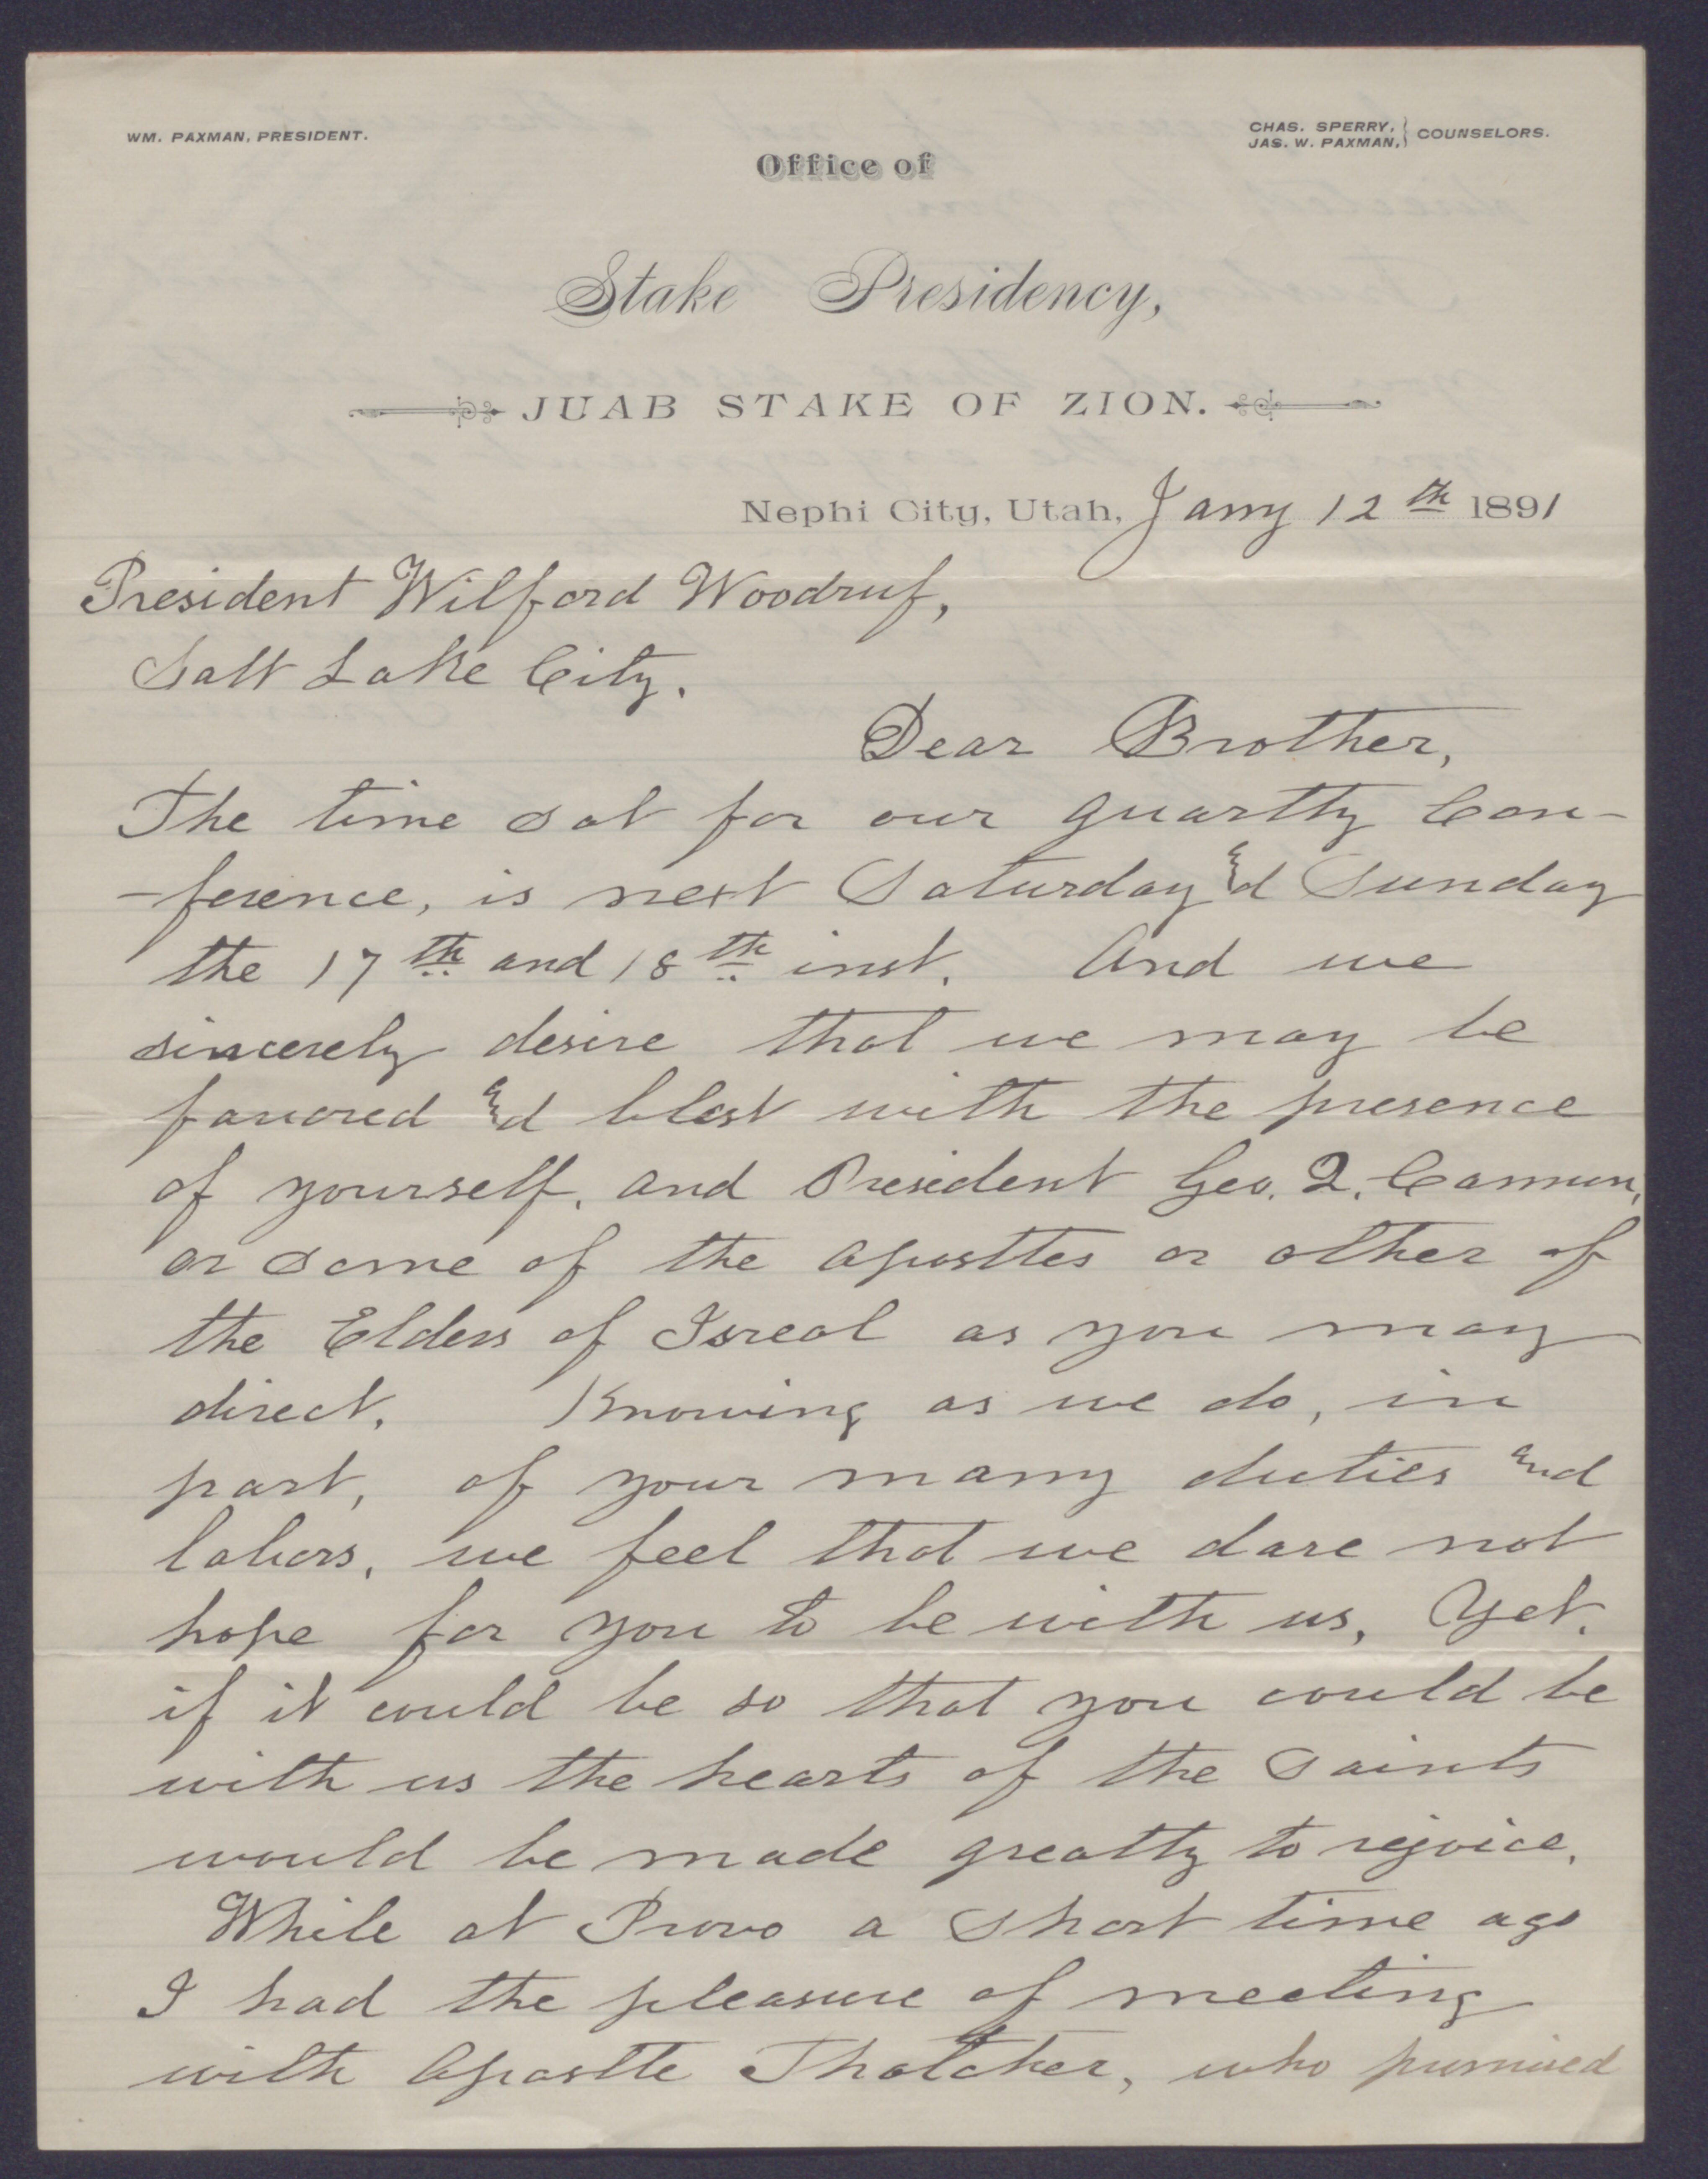 WM. PAXMAN, PRESIDENT.
CHAS. SPERRY,
JAS. W. PAXMAN,
COUNSELORS.
Office of
Stake Presidency,
JUAB STAKE OF ZION.
Nephi City, Utah, Jany 12th 1891
President Wilford Woodruf,
Salt Lake City.
Dear Brother,
The time sat for our quartly Con-
-ference, is next Saturday &d Sunday
the 17th and 18th inst. And we
sincerely desire that we may be
favored &d blest with the presence
of yourself, and President Geo. Q. Cannon,
or some of the apostles or other of
the Elders of Isreal as you may
direct. Knowing as we do, in
part, of your many duties &d
labors, we feel that we dare not
hope for you to be with us, Yet,
if it could be so that you could be
with us the hearts of the Saints
would be made greatly to rejoice.
While at Provo a short time ago
I had the pleasure of meeting
with Apostle Thatcher, who promised